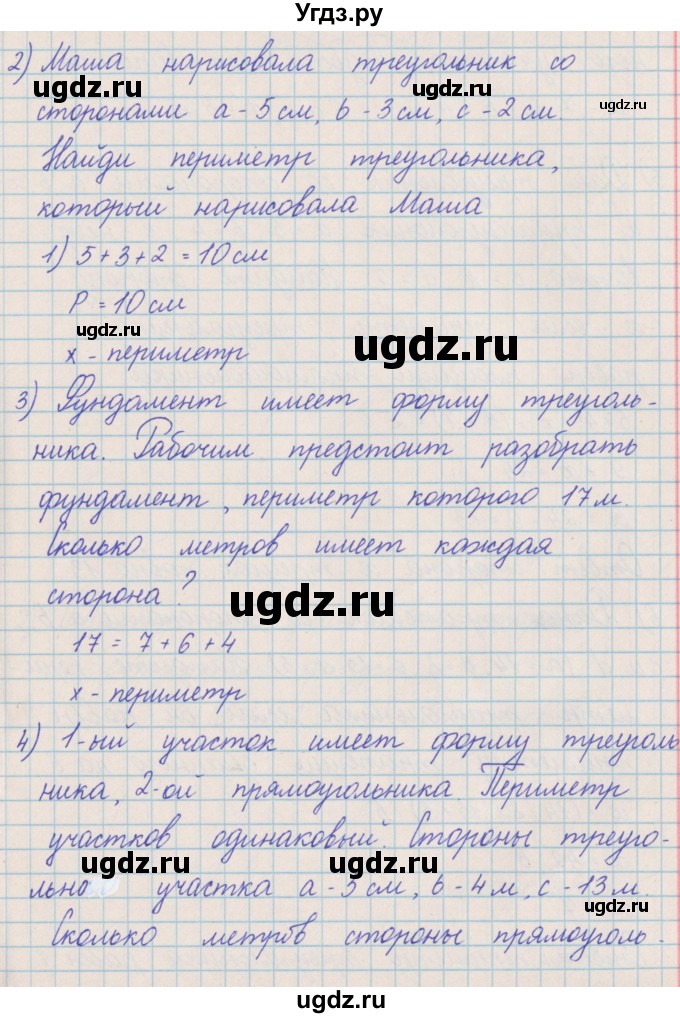 Угдз.ру
2) Маша нарисовала треугольник со
ugdz.ru ugdz.ru ugdz.ru
сторонами a - 5 см, b - 3 см, c - 2 см.
Найди периметр треугольника,
который нарисовала Маша
1) 5 + 3 + 2 = 10 см
P = 10 см
ugdz.ru
x - периметр
ugdz.ru
3) Фундамент имеет форму треуголь-
ника. Рабочим предстоит разобрать
фундамент, периметр которого 17 м.
Сколько метров имеет каждая
сторона?
ugdz.ru
17 = 7 + 6 + 4
x - периметр
4) 1-ый участок имеет форму треуголь
ника, 2-ой прямоугольника. Периметр
участков одинаковый. Стороны треуго-
ugdz.ru ugdz.ru
льно участка a - 5 см, b - 4 м, c - 13 м.
ugdz.ru
Сколько метров стороны прямоуголь-
ugdz.ru